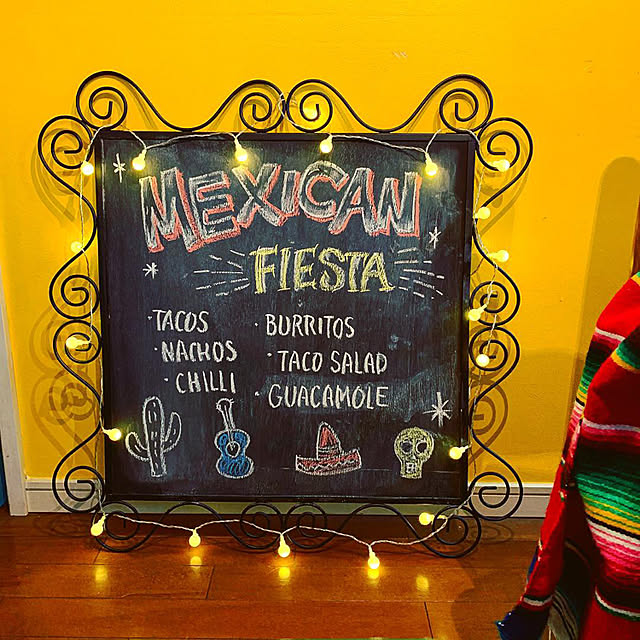 MEXICAN
FIESTA
· TACOS
· NACHOS
· CHILLI
· BURRITOS
· TACO SALAD
· GUACAMOLE